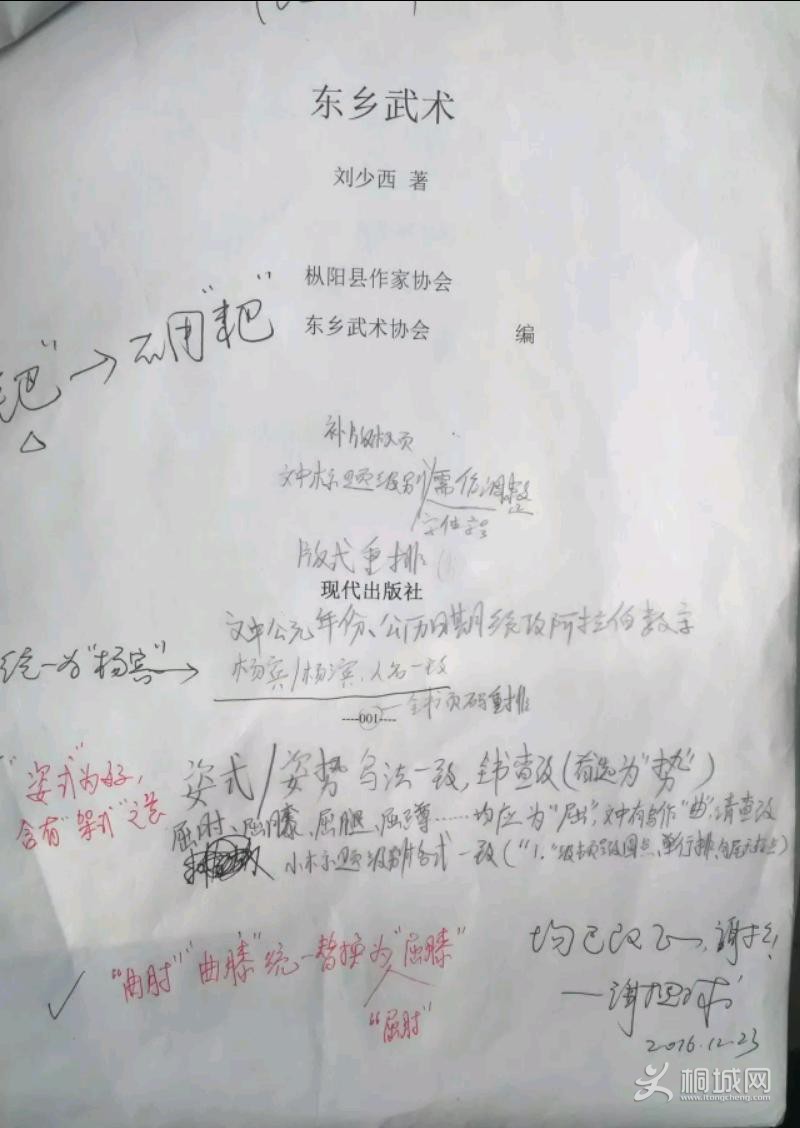 东乡武术
刘少西 著
枞阳县作家协会
东乡武术协会 编
耙" → 不用"耙"
补版权页
文中标题级别需作调整
字体字号
版式重排
现代出版社
文中公元年份、公历日期统改阿拉伯数字
统一为"杨宾" → 杨宾/杨滨,人名一致
全书页码重排
----001----
"姿式"为好,
含有"架式"之意
姿式/姿势 写法一致,全书查改(首选为"势")
屈肘、屈膝、屈腿、屈蹲……均应为"屈",文中有写作"曲",请查改
小标题级别格式一致("1."
✓ "曲肘""曲膝"统一替换为"屈膝"
"屈肘"
均已改正,谢谢!
2016.12.23
桐城网
www.itongcheng.com